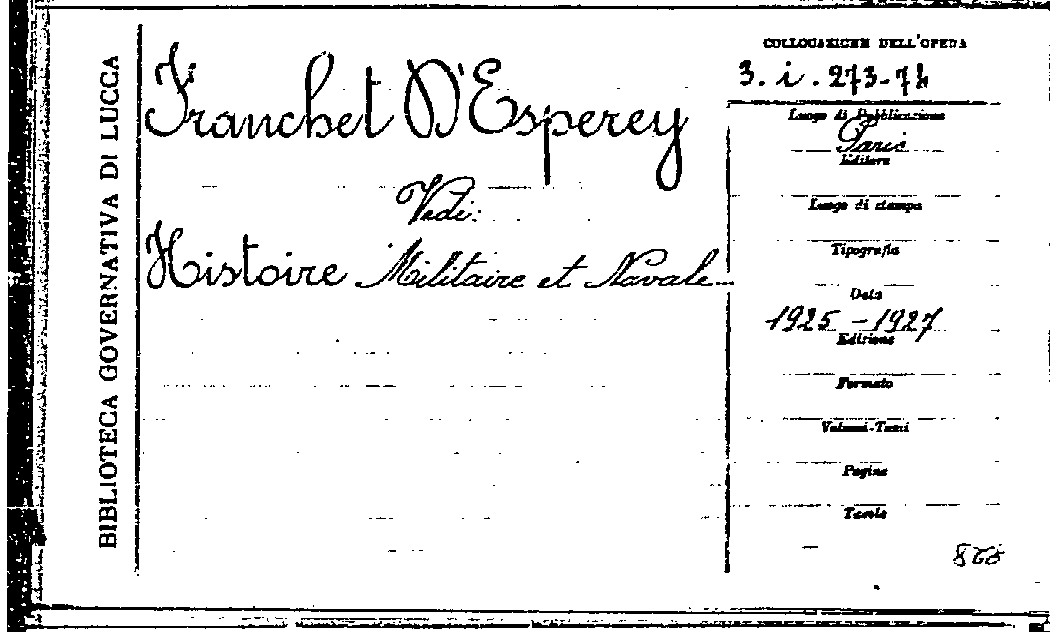 BIBLIOTECA GOVERNATIVA DI LUCCA
Franchet D'Esperey
Vedi:
Histoire Militaire et Navale...
COLLOCAZIONE DELL'OPERA
3. i. 273-74
Luogo di Pubblicazione
Paris
Editore
Luogo di stampa
Tipografia
Data
1925 - 1927
Edizione
Formato
Volumi-Tomi
Pagine
Tavole